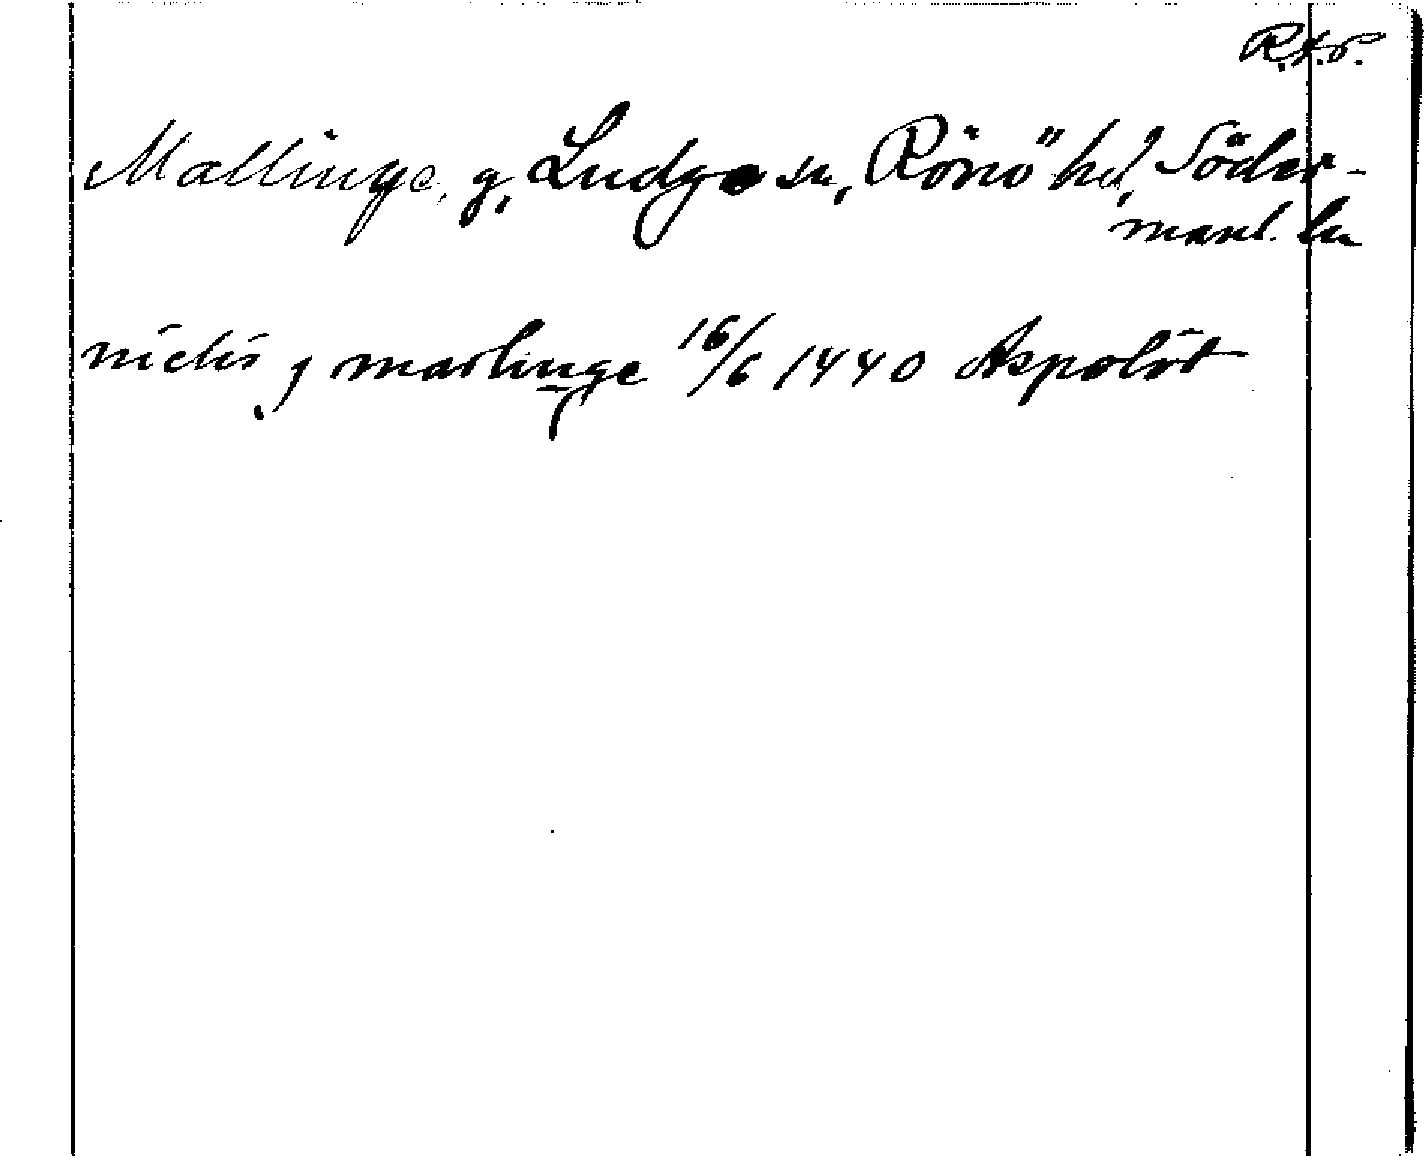 R.t.o.
Mallinge, g, Ludgo sn, Rönö hd, Söder-
manl. ln
nielis j marlinge 16/6 1440 Aspolöt